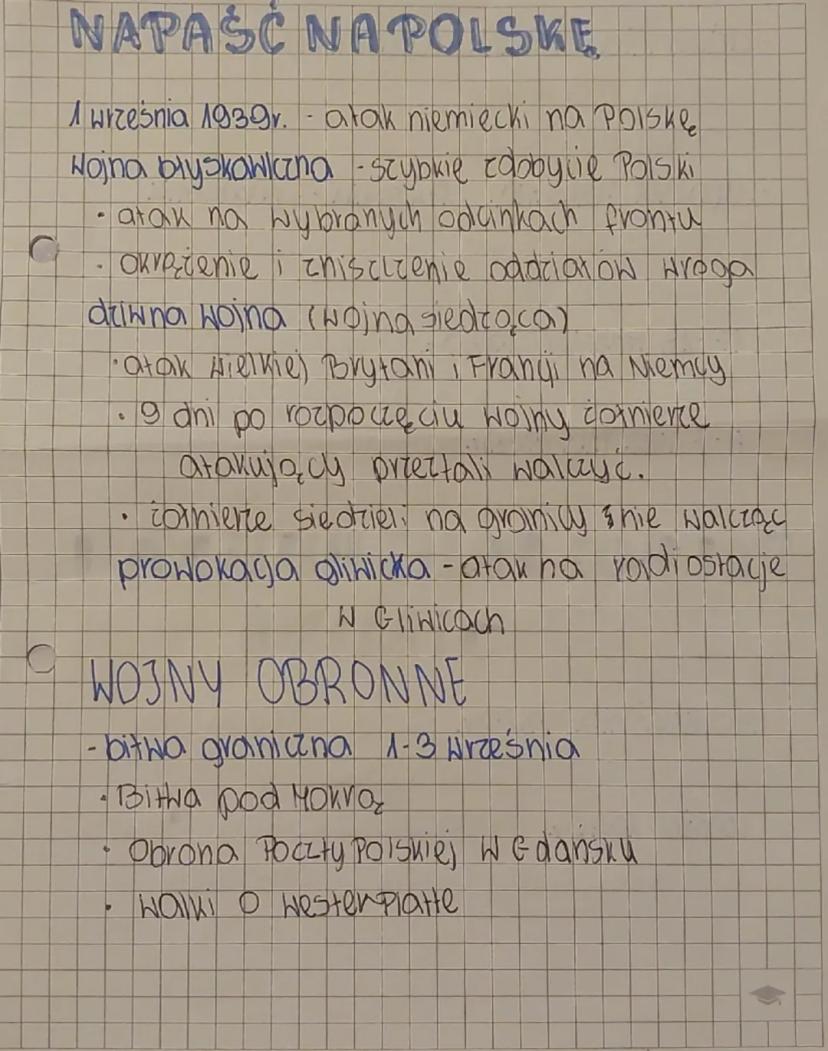 NAPAŚĆ NA POLSKĘ
1 września 1939r. - atak niemiecki na Polskę
wojna błyskawiczna - szybkie zdobycie Polski
• atak na wybranych odcinkach frontu
• okrążenie i zniszczenie oddziałów wroga
dziwna wojna (wojna siedząca)
• atak Wielkiej Brytani i Francji na Niemcy
• 9 dni po rozpoczęciu wojny żołnierze
atakujący przeztali walczyć.
• żołnierze siedzieli na granicy nie walcząc
prowokacja gliwicka - atak na radiostacje
w Gliwicach
WOJNY OBRONNE
- bitwa graniczna 1-3 września
• Bitwa pod Mokrą
• Obrona Poczty Polskiej w Gdańsku
• Walki o Westerplatte